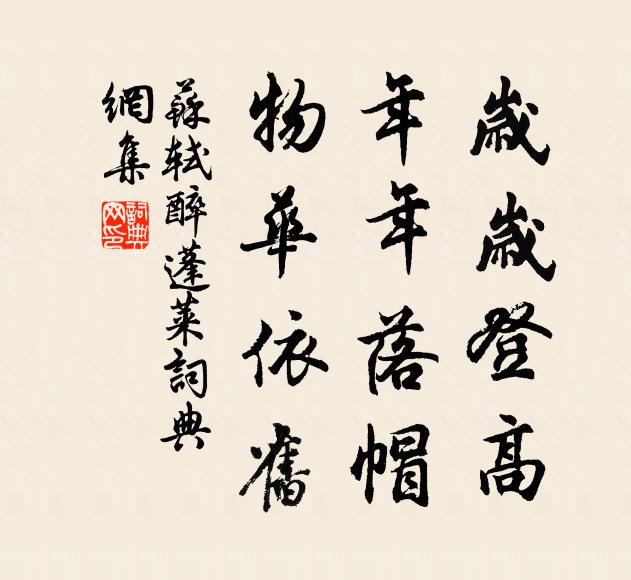 歲歲登高
年年落帽
物華依舊
蘇軾醉蓬萊詞典
網集
詞典
网印